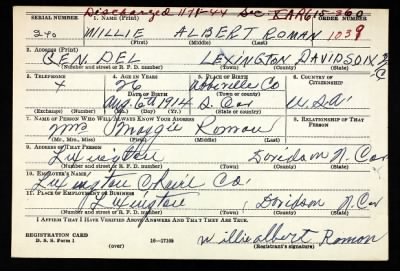 Discharged 11-18-44 Sec KAR615-360
SERIAL NUMBER 1. NAME (Print) ORDER NUMBER
240 WILLIE ALBERT ROMAN 1039
(First) (Middle) (Last)
2. ADDRESS (Print)
GEN. DEL. LEXINGTON DAVIDSON N C
(Number and street or R. F. D. number) (Town) (County) (State)
3. TELEPHONE 4. AGE IN YEARS 5. PLACE OF BIRTH 6. COUNTRY OF CITIZENSHIP
x 26 Co
DATE OF BIRTH (Town or county)
Aug. 6th 1914 S. Car U.S.A.
(Exchange) (Number) (Mo.) (Day) (Yr.) (State or country)
7. NAME OF PERSON WHO WILL ALWAYS KNOW YOUR ADDRESS 8. RELATIONSHIP OF THAT PERSON
Mrs Maggie Roman
(Mr., Mrs., Miss) (First) (Middle) (Last)
9. ADDRESS OF THAT PERSON
Lexington Davidson N. Car
(Number and street or R. F. D. number) (Town) (County) (State)
10. EMPLOYER'S NAME
Lexington Chair Co.
11. PLACE OF EMPLOYMENT OR BUSINESS
Lexington Davidson N. Car
(Number and street or R. F. D. number) (Town) (County) (State)
I AFFIRM THAT I HAVE VERIFIED ABOVE ANSWERS AND THAT THEY ARE TRUE.
REGISTRATION CARD
D. S. S. Form 1 (over) 16—17105 williealbert Roman
(Registrant's signature)